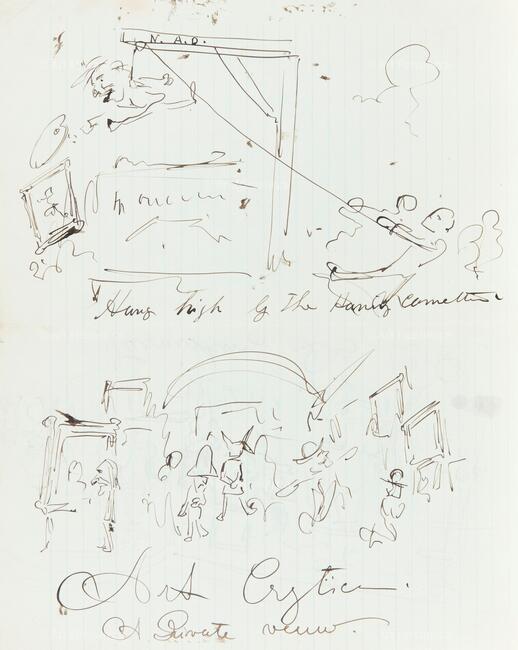 N. A. D.
"Hung high by the Hanging Committee
Art Crytics.
A Private view.